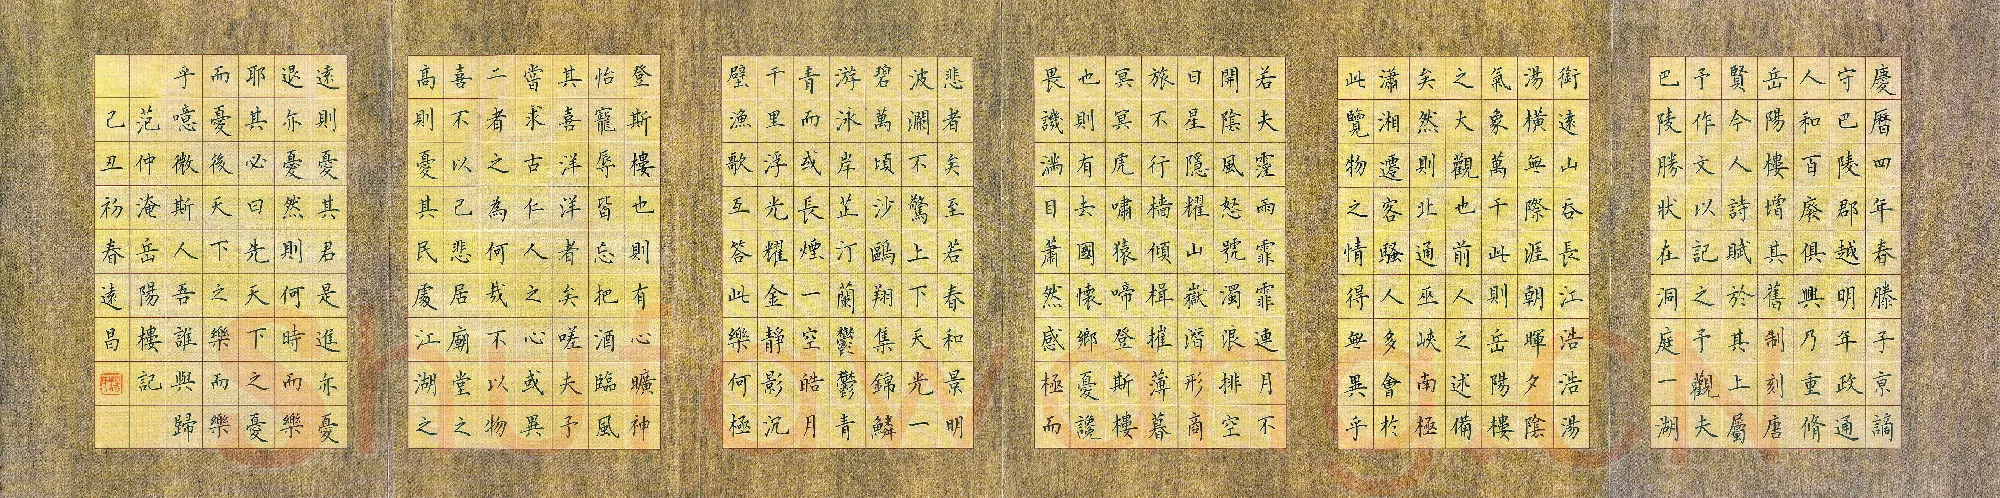 慶曆四年春滕子京謫
守巴陵郡越明年政通
人和百廢俱興乃重脩
岳陽樓增其舊制刻唐
賢今人詩賦於其上屬
予作文以記之予觀夫
巴陵勝狀在洞庭一湖
銜遠山吞長江浩浩湯
湯橫無際涯朝暉夕陰
氣象萬千此則岳陽樓
之大觀也前人之述備
矣然則北通巫峽南極
瀟湘遷客騷人多會於
此覽物之情得無異乎
若夫霪雨霏霏連月不
開陰風怒號濁浪排空
日星隱耀山嶽潛形商
旅不行檣傾楫摧薄暮
冥冥虎嘯猿啼登斯樓
也則有去國懷鄉憂讒
畏譏滿目蕭然感極而
悲者矣至若春和景明
波瀾不驚上下天光一
碧萬頃沙鷗翔集錦鱗
游泳岸芷汀蘭鬱鬱青
青而或長煙一空皓月
千里浮光耀金靜影沉
璧漁歌互答此樂何極
登斯樓也則有心曠神
怡寵辱皆忘把酒臨風
其喜洋洋者矣嗟夫予
當求古仁人之心或異
二者之為何哉不以物
喜不以己悲居廟堂之
高則憂其民處江湖之
遠則憂其君是進亦憂
退亦憂然則何時而樂
耶其必曰先天下之憂
而憂後天下之樂而樂
乎噫微斯人吾誰與歸
范仲淹岳陽樓記
己丑初春遠昌